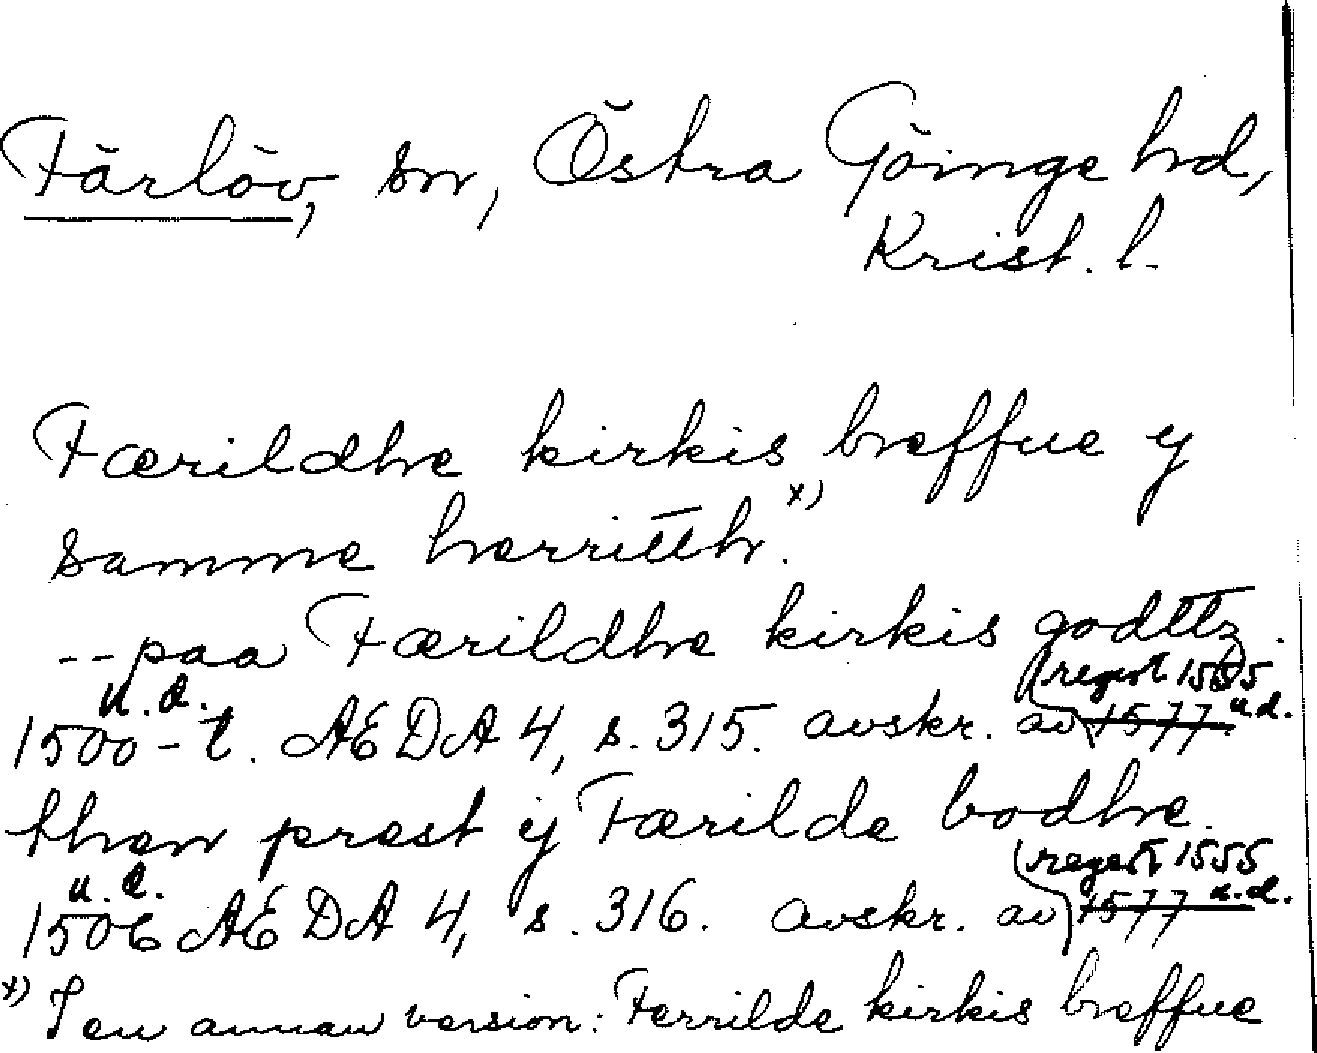 Färlöv, sn, Östra Göinge hd,
Krist. l.
Færildhe kirkis breffue y
samme herritth.x)
-- paa Færildhe kirkis godttz.
u. d. regest 1555
1500-t. AEDA 4, s. 315. avskr. av 1577 u.d.
then prest y Færilde bodhe.
u. d. regest 1555
1506 AEDA 4, s. 316. avskr. av 1577 u.d.
x) I en annan version: Ferrilde kirkis breffue